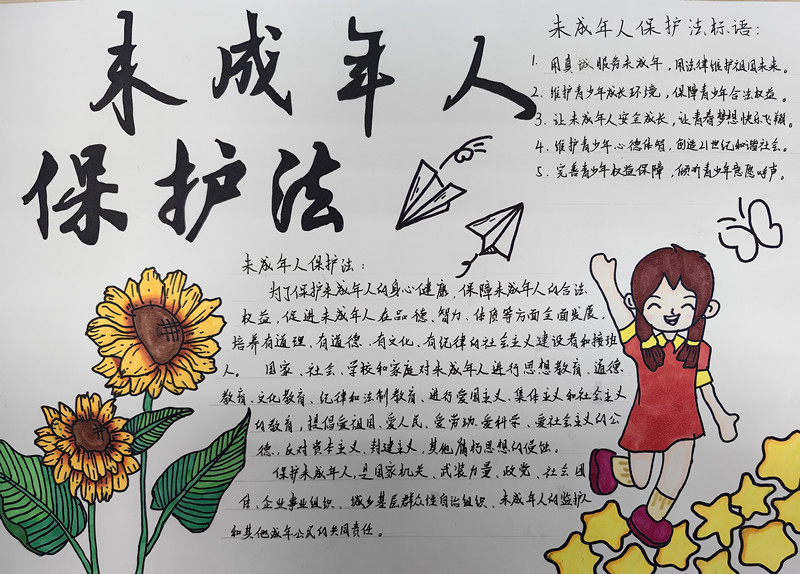 未成年人
保护法
未成年人保护法标语:
1. 用真诚服务未成年,用法律维护祖国未来。
2. 维护青少年成长环境,保障青少年合法权益。
3. 让未成年人安全成长,让青春梦想快乐飞翔。
4. 维护青少年心德体智,创造21世纪和谐社会。
5. 完善青少年权益保障,倾听青少年意愿呼声。
未成年人保护法:
为了保护未成年人的身心健康,保障未成年人的合法
权益,促进未成年人在品德、智力、体质等方面全面发展,
培养有道理、有道德、有文化、有纪律的社会主义建设者和接班
人。 国家、社会、学校和家庭对未成年人进行思想教育、道德
教育、文化教育、纪律和法制教育,进行爱国主义、集体主义和社会主义
的教育,提倡爱祖国、爱人民、爱劳动、爱科学、爱社会主义的公
德,反对资本主义、封建主义、其他腐朽思想的侵蚀。
保护未成年人,是国家机关、武装力量、政党、社会团
体、企业事业组织、城乡基层群众性自治组织、未成年人的监护人
和其他成年公民的共同责任。